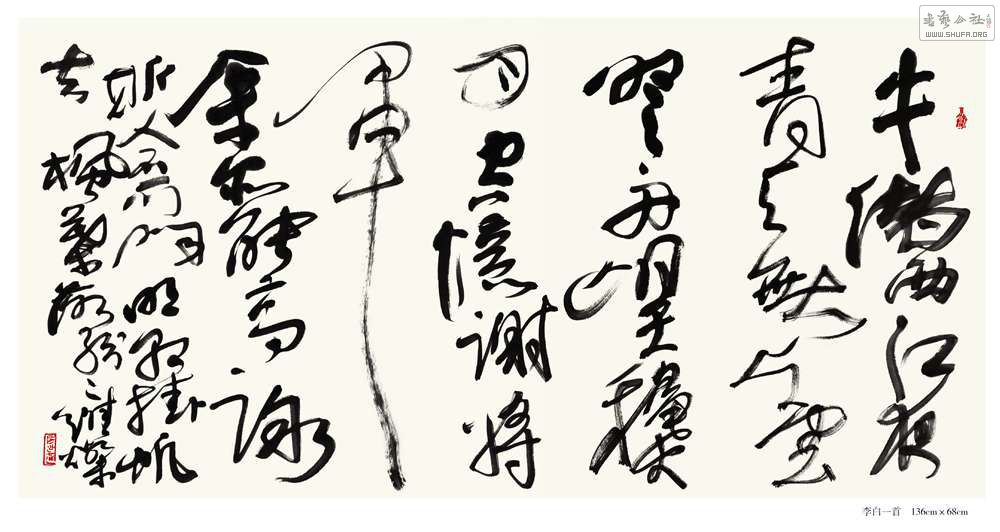 牛渚西江夜
青天無片雲
登舟望秋
月空憶謝將
軍
余亦能高詠
斯人不可聞明朝掛帆
去楓葉落紛々
書藝公社
WWW.SHUFA.ORG
李白一首 136cm × 68cm